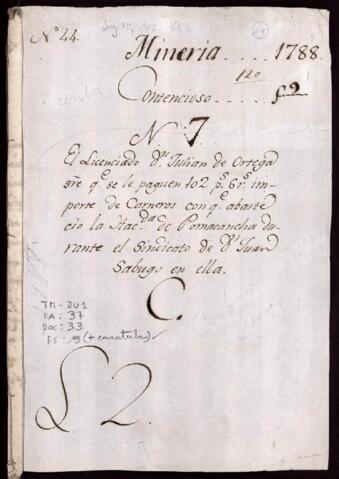 N.º 44.
Mineria .... 1788.
120
Contencioso .... f. 2
N. 7
El Licenciado D.n Julian de Ortega
sre q.e se le paguen 102 p.s 6 r.s im-
porte de Carneros con q.e abaste-
cio la Hac.da de Pomacancha du-
rante el Sindicato de D.n Juan
Sabugo en ella.
C.
TM-DU1
CA: 37
DOC: 33
FS: 9 (+ caratula)
L 2